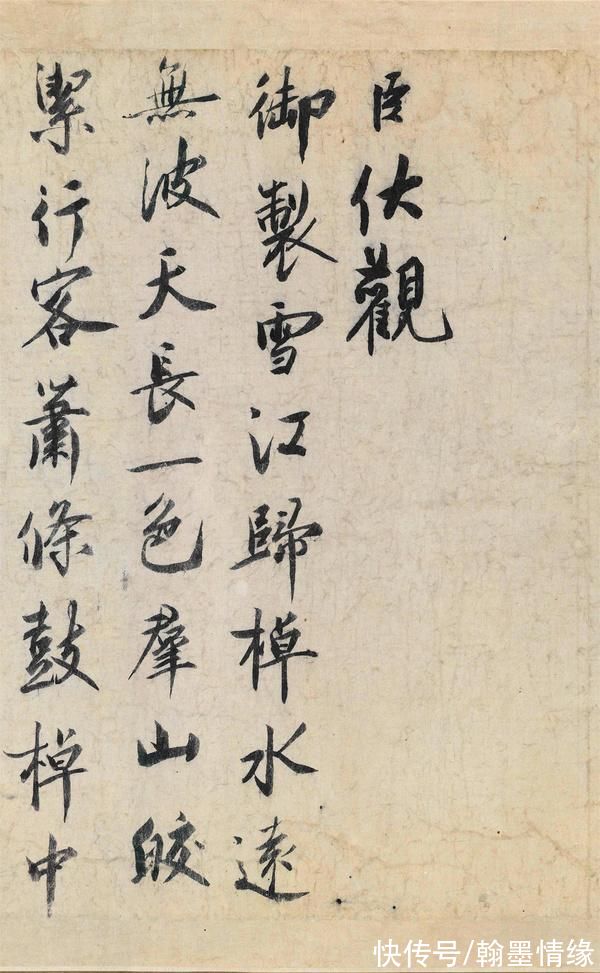 臣伏觀
御製雪江歸棹水遠
無波天長一色群山皎
潔行客蕭條鼓棹中
快传号/翰墨情缘